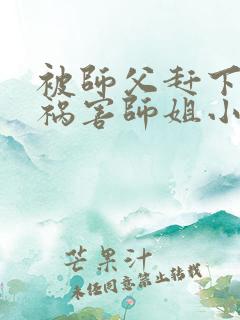 被師父赶下
祸害師姐小
芒果汁
未经同意禁止转载